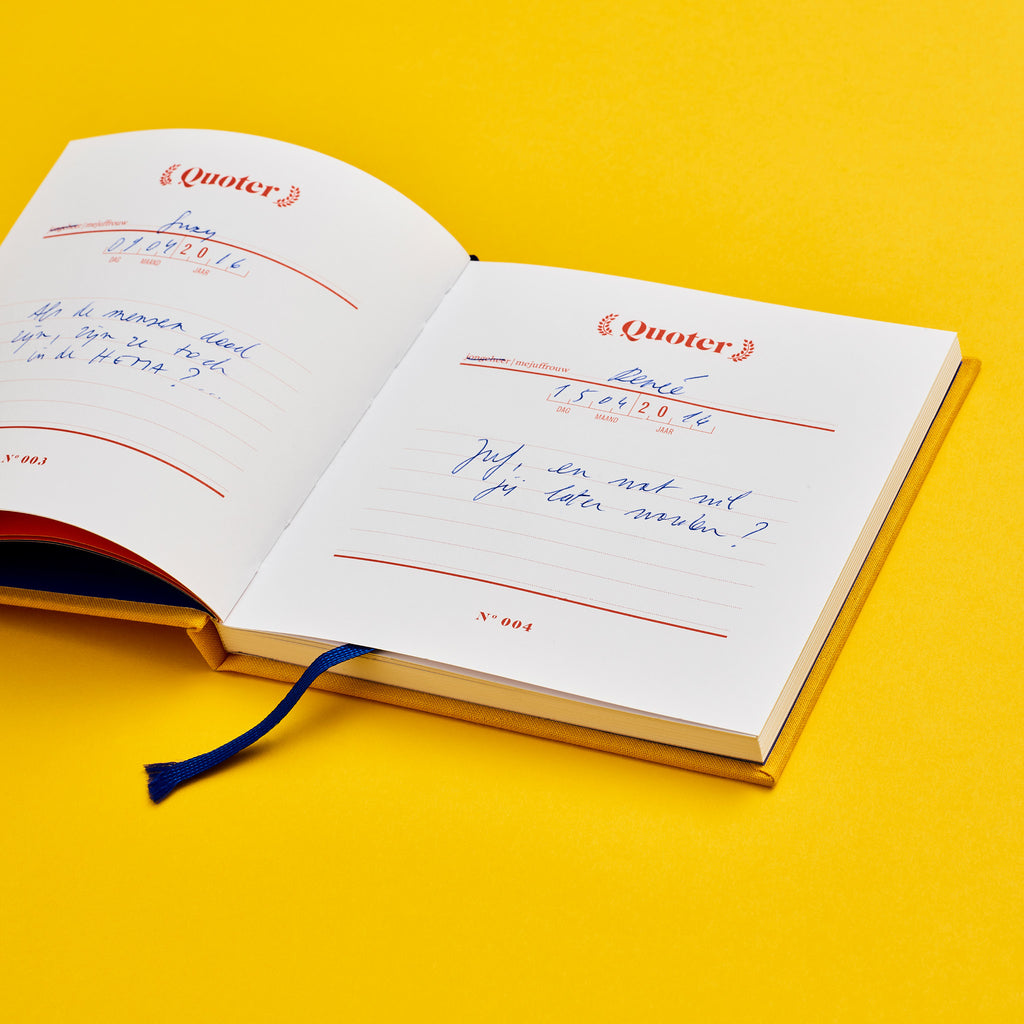 Quoter
jongeheer | mejuffrouw
Suzy
09 04 20 16
DAG MAAND JAAR
Als de mensen dood
zijn, zijn ze toch
in de HEMA?...
Nº 003
Quoter
jongeheer | mejuffrouw
Renée
15 04 20 14
DAG MAAND JAAR
Juf, en wat wil
jij later worden?
Nº 004